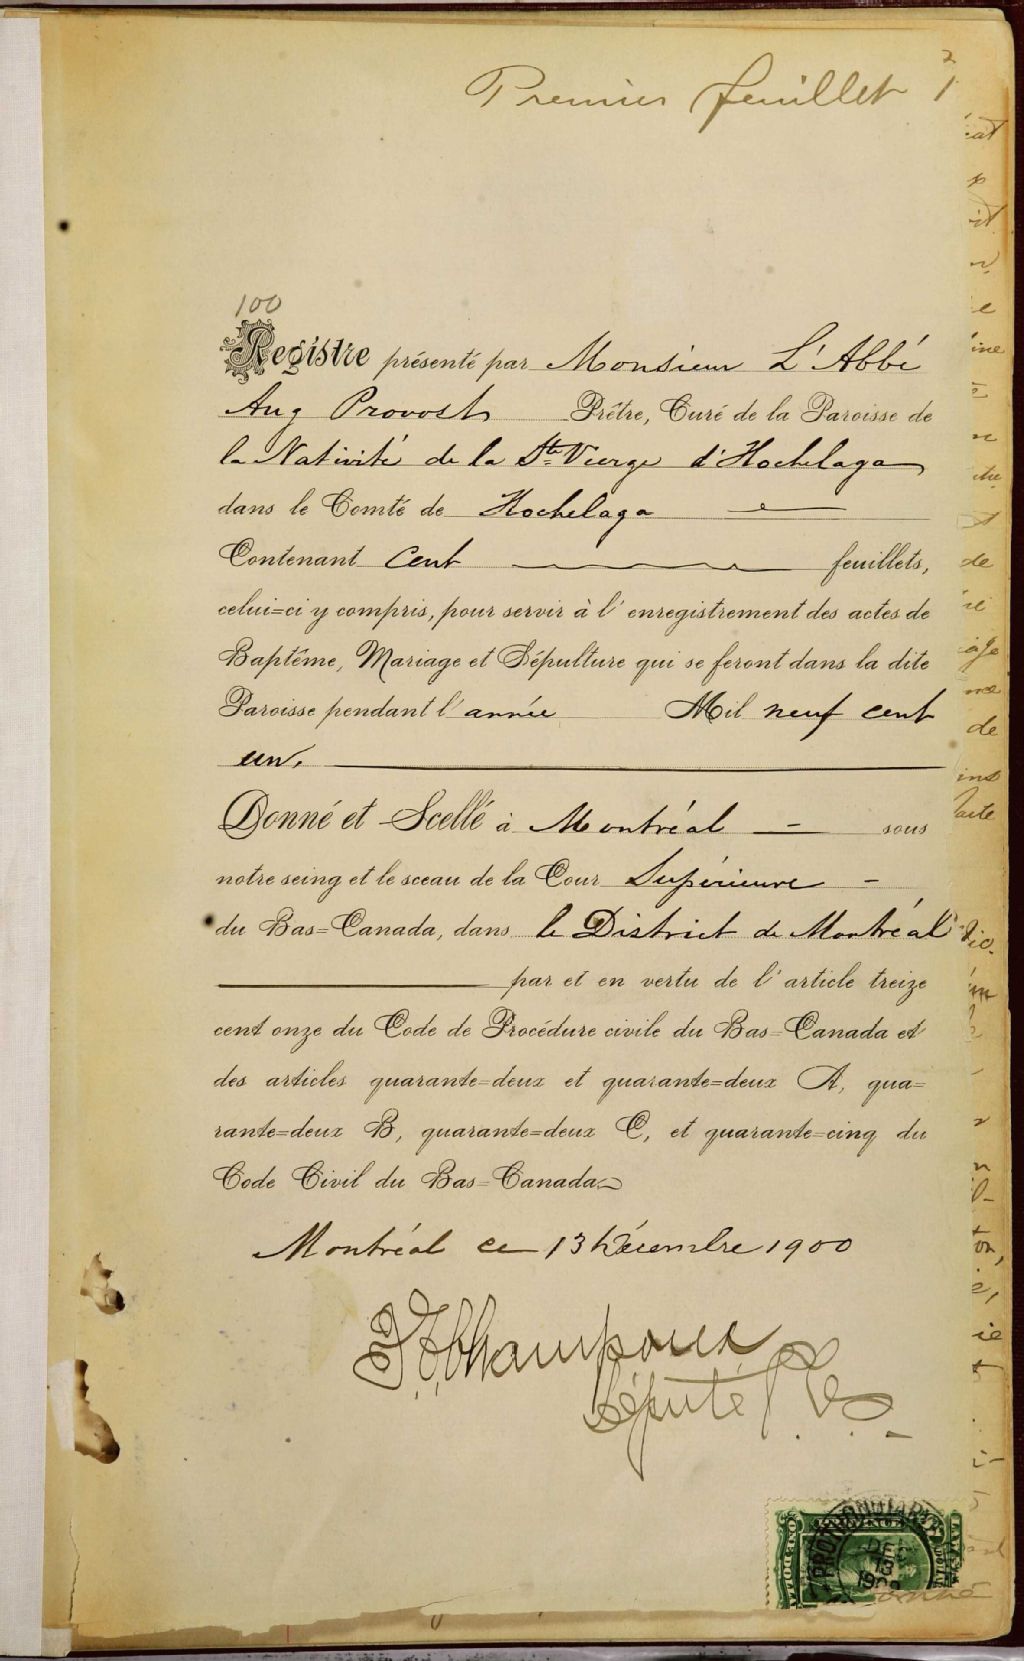 Premier feuillet 1
100
Registre présenté par Monsieur L'Abbé
Aug Provost Prêtre, Curé de la Paroisse de
la Nativité de la Ste Vierge d'Hochelaga
dans le Comté de Hochelaga
Contenant Cent feuillets,
celui=ci y compris, pour servir à l'enregistrement des actes de
Baptême, Mariage et Sépulture qui se feront dans la dite
Paroisse pendant l'année Mil neuf cent
un.
Donné et Scellé à Montréal — sous
notre seing et le sceau de la Cour Supérieure -
du Bas=Canada, dans le District de Montréal
par et en vertu de l'article treize
cent onze du Code de Procédure civile du Bas=Canada et
des articles quarante=deux et quarante=deux A, qua=
rante=deux B, quarante=deux C, et quarante=cinq du
Code Civil du Bas=Canada
Montréal ce 13 Décembre 1900
Champoux
Député P.C.S.